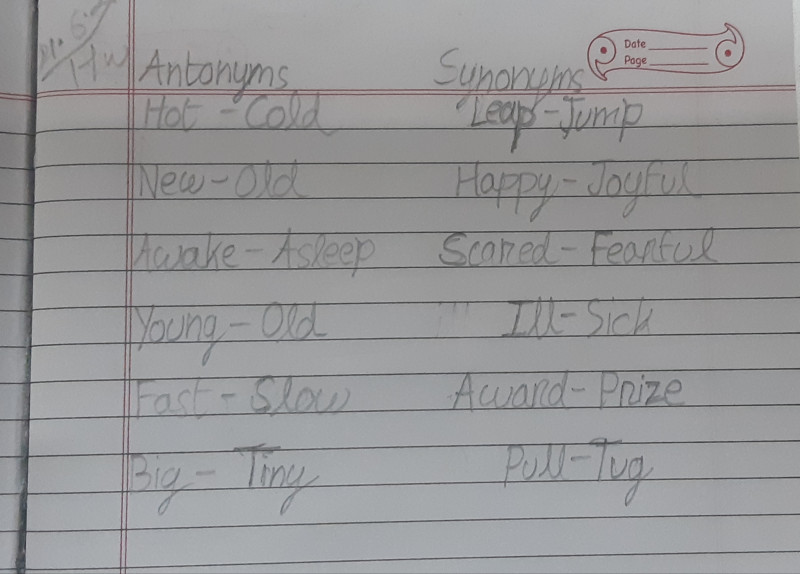 H.W
Date
Page
Antonyms Synonyms
Hot - Cold Leap - Jump
New - Old Happy - Joyful
Awake - Asleep Scared - Fearful
Young - Old Ill - Sick
Fast - Slow Award - Prize
Big - Tiny Pull - Tug